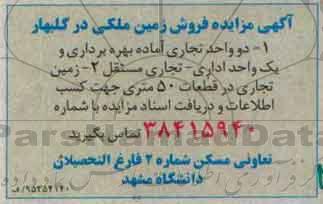 آگهی مزایده فروش زمین ملکی در گلبهار
۱- دو واحد تجاری آماده بهره برداری و
یک واحد اداری- تجاری مستقل ۲- زمین
تجاری در قطعات ۵۰ متری جهت کسب
اطلاعات و دریافت اسناد مزایده با شماره
۳۸۴۱۵۹۴۰ تماس بگیرید.
تعاونی مسکن شماره ۲ فارغ التحصیلان
دانشگاه مشهد
۹۵۳۵۲۱۴۰/ف